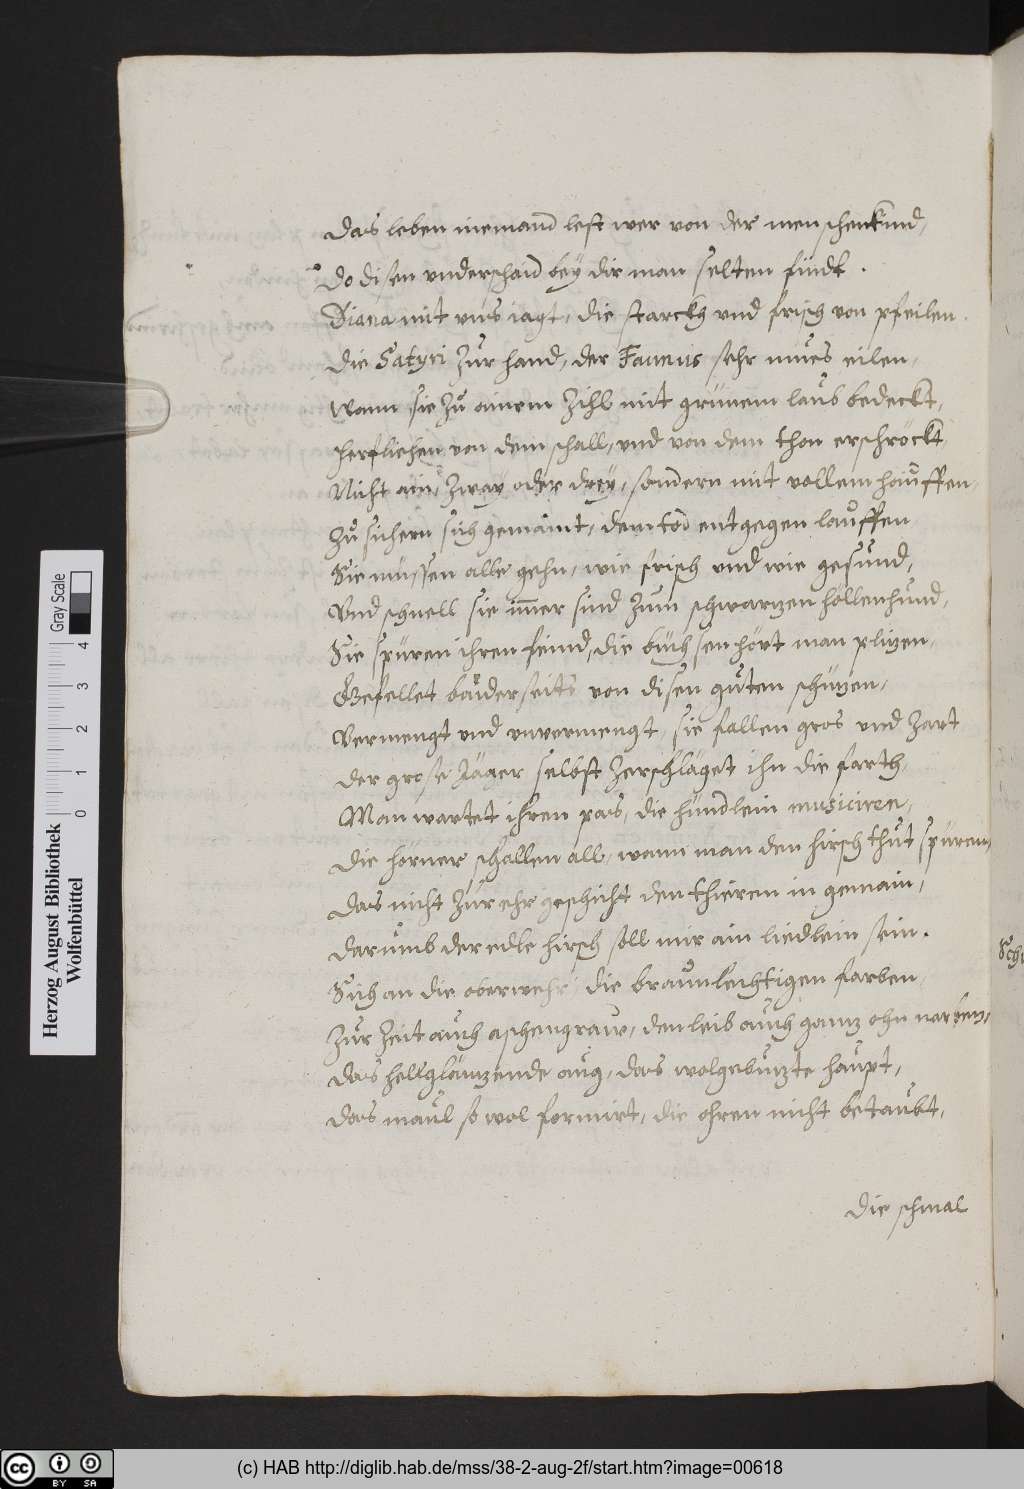 das leben niemand lest wer von der menschenkind,
Do disen underschaid bey dir man selten findt.
Diana mit uns iagt, die starckh und frisch von pfeilen.
die Satyri zur hand, der Faunus sehr mues eilen,
Wann sie zu ainem zihl mit grünem laub bedeckt,
herfliehen von dem schall, und von dem thon erschröckt,
Nicht ain, zway oder drey, sondern mit vollem hauffen,
zu sichern sich gemaint, dem tod entgegen lauffen
Sie müssen alle gehn, wie frisch und wie gesund,
Und schnell sie imer sind zum schwartzen höllenhund,
Sie spüren ihren feind, die büchsen hört man plitzen,
Gefellet baiderseits von disen guten schützen,
Vermengt und unvermengt, sie fallen gros und zart
der grose Jäger selbst zerschläget ihn die farth,
Man wartet ihren pas, die hündlein musiciren,
die hörner schallen all, wann man den hirsch thut spüren,
das nicht zur ehr geschicht den thieren in gemain,
darumb der edle hirsch soll mir ain liedlein sein.
Sich an die oberwehr die braunlechtigen farben
zur Zeit auch aschengraw, den leib auch gantz ohn narben,
das hellgläntzende aug, das wolgebutzte haupt,
das maul so wol formirt, die ohren nicht betaubt,
die schmal
Herzog August Bibliothek
Wolfenbüttel
0 1 2 3 4
Gray Scale
cc BY SA
(c) HAB http://diglib.hab.de/mss/38-2-aug-2f/start.htm?image=00618